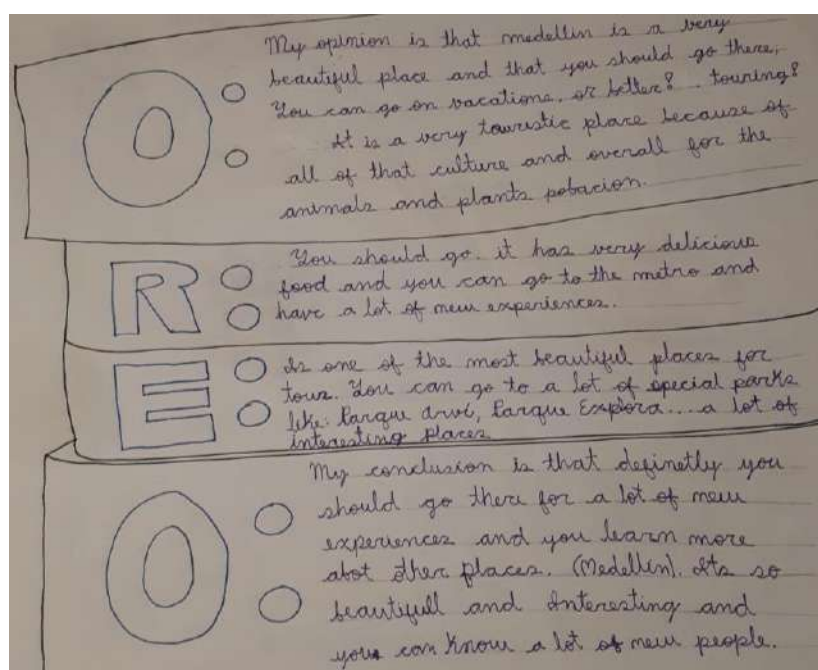 O:
My opinion is that medellin is a very
beautiful place and that you should go there,
You can go on vacations, or better? .. touring?
It is a very touristic place because of
all of that culture and overall for the
animals and plants pobacion.
R:
You should go. it has very delicious
food and you can go to the metro and
have a lot of new experiences.
E:
Is one of the most beautiful places for
tour. You can go to a lot of special parks
like: Parque Arvi, Parque Explora.... a lot of
interesting places
O:
My conclusion is that definetly you
should go there for a lot of new
experiences and you learn more
abot other places. (Medellin). Its so
beautifull and Interesting and
you can know a lot of new people.